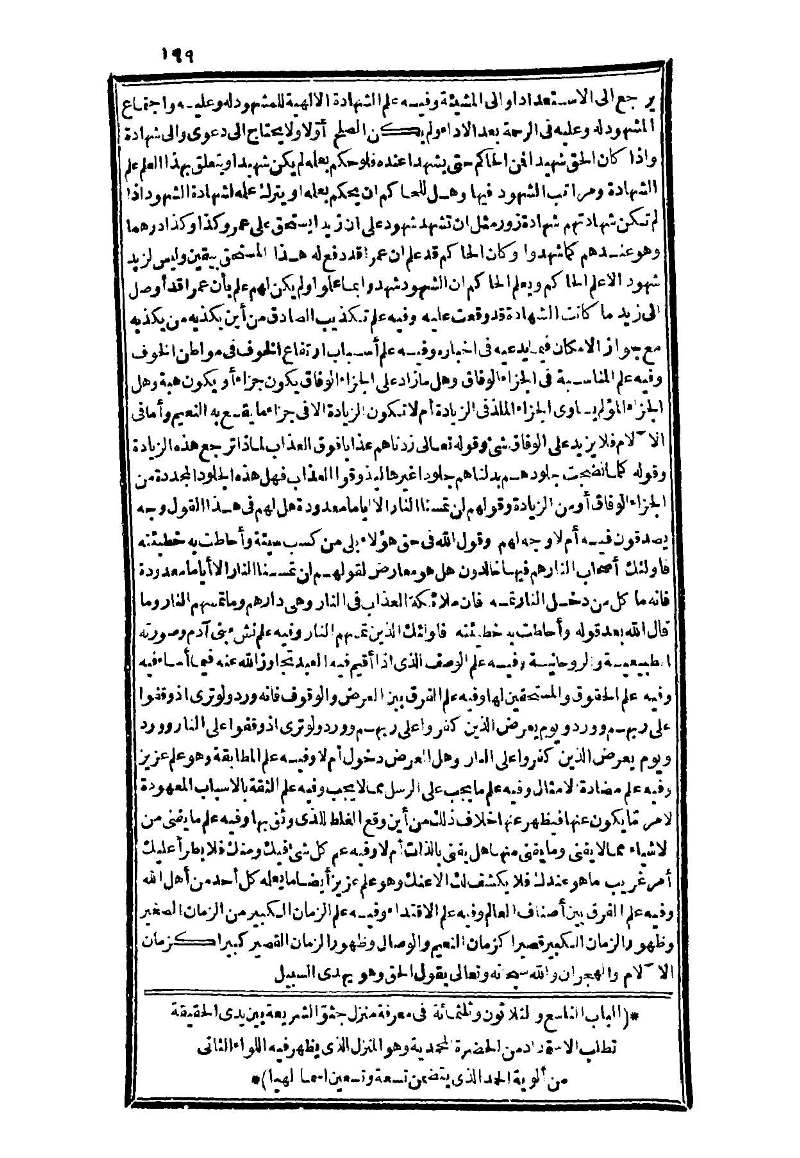 ١٩٩
يرجع الى الاستعداد او الى المشيئة وفيه علم الشهادة الالهية للمشهود له وعليه واجتماع
المشهود له وعليه فى الرحمة بعد الاداء ولم يكن الصلح أولا ولا يحتاج الى دعوى والى شهادة
واذا كان الحق شهيدا فمن الحاكم حتى يشهد عنده فلو حكم بعلمه لم يكن شهيدا ويتعلق بهذا العلم علم
الشهادة ومراتب الشهود فيها وهل للحاكم ان يحكم بعلمه او يترك علمه لشهادة الشهود اذا
لم تكن شهادتهم شهادة زور مثل ان تشهد شهود على ان زيدا يستحق على عمرو كذا وكذا درهما
وهو عندهم كما شهدوا وكان الحاكم قد علم ان عمرا قد دفع له هذا المستحق بيقين وليس لزيد
شهود الا علم الحاكم ويعلم الحاكم ان الشهود شهدوا بما علموا ولم يكن لهم علم بأن عمرا قد أوصل
الى زيد ما كانت الشهادة قد وقعت عليه وفيه علم تكذيب الصادق من أين يكذبه من يكذبه
مع جواز الامكان فيما يدعيه فى اخباره وفيه علم أسباب ارتفاع الخوف فى مواطن الخوف
وفيه علم المناسبة فى الجزاء الوفاق وهل ما زاد على الجزاء الوفاق يكون جزاء أو يكون هبة وهل
الجزاء المؤلم يساوى الجزاء الملذ فى الزيادة أم لا تكون الزيادة الا فى جزاء ما يقع به النعيم وأما فى
الآلام فلا يزيد على الوفاق شئ وقوله تعالى زدناهم عذابا فوق العذاب لماذا ترجع هذه الزيادة
وقوله كلما نضجت جلودهم بدلناهم جلودا غيرها ليذوقوا العذاب فهل هذه الجلود المجددة من
الجزاء الوفاق أو من الزيادة وقولهم لن تمسنا النار الا أياما معدودة هل لهم فى هذا القول وجه
يصدقون فيه أم لا وجه لهم وقول الله فى حق هؤلاء بلى من كسب سيئة وأحاطت به خطيئته
فاولئك أصحاب النار هم فيها خالدون هل هو معارض لقولهم لن تمسنا النار الا أياما معدودة
فانه ما كل من دخل النار تمسه فان ملائكة العذاب فى النار وهى دارهم وما تمسهم النار وما
قال الله بعد قوله وأحاطت به خطيئته فاولئك الذين تمسهم النار وفيه علم نش بنى آدم وصورته
الطبيعية والروحانية وفيه علم الوصف الذى اذا أقيم فيه العبد تجاوز الله عنه فيما أساء فيه
وفيه علم الحقوق والمستحقين لها وفيه علم الفرق بين العرض والوقوف فانه ورد ولو ترى اذ وقفوا
على ربهم وورد ويوم يعرض الذين كفروا على ربهم وورد ولو ترى اذ وقفوا على النار وورد
ويوم يعرض الذين كفروا على النار وهل العرض دخول أم لا وفيه علم المطابقة وهو علم عزيز
وفيه علم مضادة الامثال وفيه علم ما يجب على الرسل مما لا يجب وفيه علم الثقة بالاسباب المعهودة
لامر ما يكون عنها فيظهر عنها خلاف ذلك من أين وقع الغلط للذى وثق بها وفيه علم ما يفنى من
الاشياء مما لا يفنى وما يفنى منها هل يفنى بالذات أم لا وفيه علم كل شئ فيك ومنك فلا يطرأ عليك
أمر غريب ما هو عندك فلا يكشف لك الا عنك وهو علم عزيز أيضا ما يعلمه كل أحد من أهل الله
وفيه علم الفرق بين أصناف العالم وفيه علم الاقتداء وفيه علم الزمان الكبير من الزمان الصغير
وظهور الزمان الكبير قصيرا كزمان النعيم والوصال وظهور الزمان القصير كبيرا كزمان
الآلام والهجران والله سبحانه وتعالى يقول الحق وهو يهدى السبيل
*(الباب التاسع والثلاثون وثلثمائة فى معرفة منزل جثو الشريعة بين يدى الحقيقة
تطلب الاستمداد من الحضرة المحمدية وهو المنزل الذى يظهر فيه اللواء الثانى
من ألوية الحمد الذى يتضمن تسعة وتسعين اسما الهيا)*